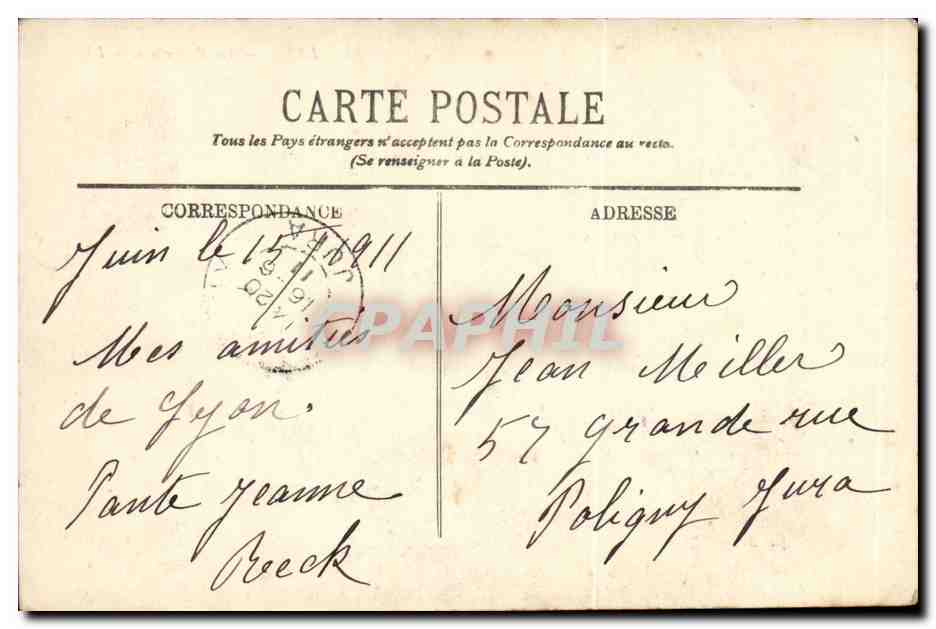 CARTE POSTALE
Tous les Pays étrangers n'acceptent pas la Correspondance au recto.
(Se renseigner à la Poste).
CORRESPONDANCE
Juin le 15 1911
Mes amitiés
de Lyon.
Tante Jeanne
Reck
ADRESSE
Monsieur
Jean Meiller
57 grande rue
Poligny Jura
JURA
20
16 - 6
11
CPAPHIL